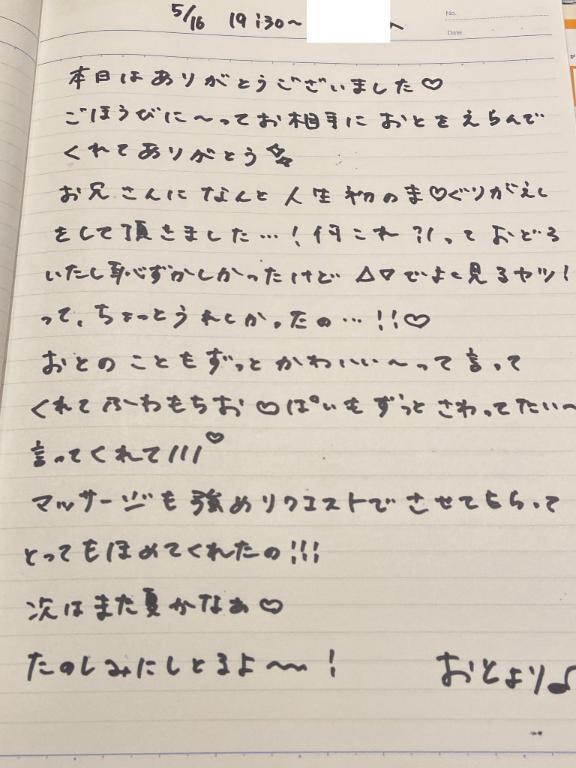 5/16 19:30〜 へ
No.
Date
本日はありがとうございました♡
ごほうびに〜ってお相手におとをえらんで
くれてありがとう
お兄さんになんと人生初のま♡ぐりがえし
をして頂きました…!何これ?!っておどろ
いたし恥ずかしかったけど△▽でよく見るヤツ!
って、ちょっとうれしかったの…!!♡
おとのこともずっとかわいい〜って言って
くれてふーわもちお♡ぱいもずっとさわってたい〜
言ってくれて!!!♡
マッサージも強めリクエストでさせてもらって
とってもほめてくれたの!!!
次はまた夏かなぁ♡
たのしみにしとるよ〜〜!
おとより♪